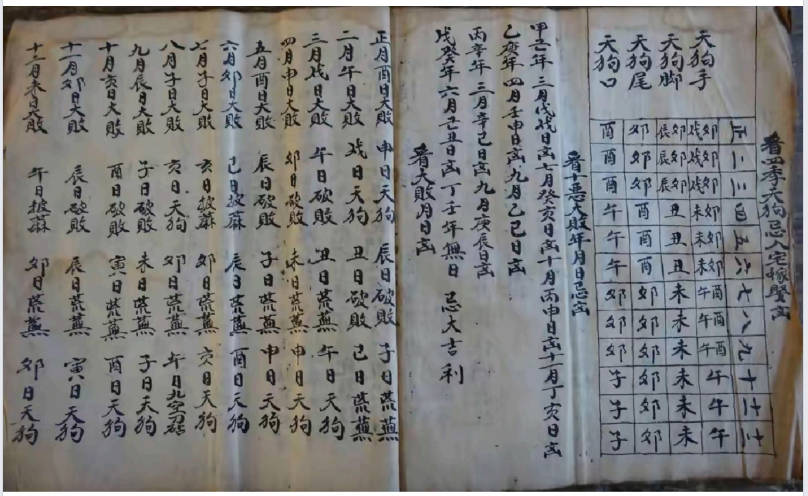 看四季天狗忌入宅嫁娶凶
正 二 三 四 五 六 七 八 九 十 十一 十二
天狗手 卯戌 卯戌 卯戌 卯未 卯未 卯未 酉午 酉午 酉午 午 午 午
天狗脚 卯辰 卯辰 卯辰 丑 丑 丑 未 未 未 未 未 未
天狗尾 卯 卯 卯 酉 酉 酉 卯 卯 卯 卯 卯 卯
天狗口 酉 酉 酉 午 午 午 卯 卯 卯 子 子 子
看十恶大敗年月日忌凶
甲己年 三月戊戌日凶 七月癸亥日凶 十月丙申日凶 十一月丁亥日凶
乙庚年 四月壬申日凶 九月乙巳日凶
丙辛年 三月辛巳日凶 九月庚辰日凶
戊癸年 六月己丑日凶 丁壬年無日 忌大吉利
看大敗月日凶
正月酉日大敗 申日天狗 辰日砍敗 子日荒蕪
二月午日大敗 戌日天狗 丑日砍敗 巳日荒蕪
三月戌日大敗 午日砍敗 丑日荒蕪 午日天狗
四月申日大敗 卯日砍敗 未日荒蕪 申日天狗
五月酉日大敗 辰日砍敗 子日荒蕪 申日天狗
六月卯日大敗 巳日披蔴 辰日荒蕪 酉日天狗
七月子日大敗 亥日披蔴 卯日荒蕪 亥日天狗
八月子日大敗 亥日天狗 卯日荒蕪 午日九空
九月辰日大敗 子日砍敗 未日荒蕪 子日天狗
十月亥日大敗 酉日砍敗 寅日荒蕪 酉日天狗
十一月卯日大敗 辰日砍敗 辰日荒蕪 寅日天狗
十二月未日大敗 午日披蔴 卯日荒蕪 卯日天狗